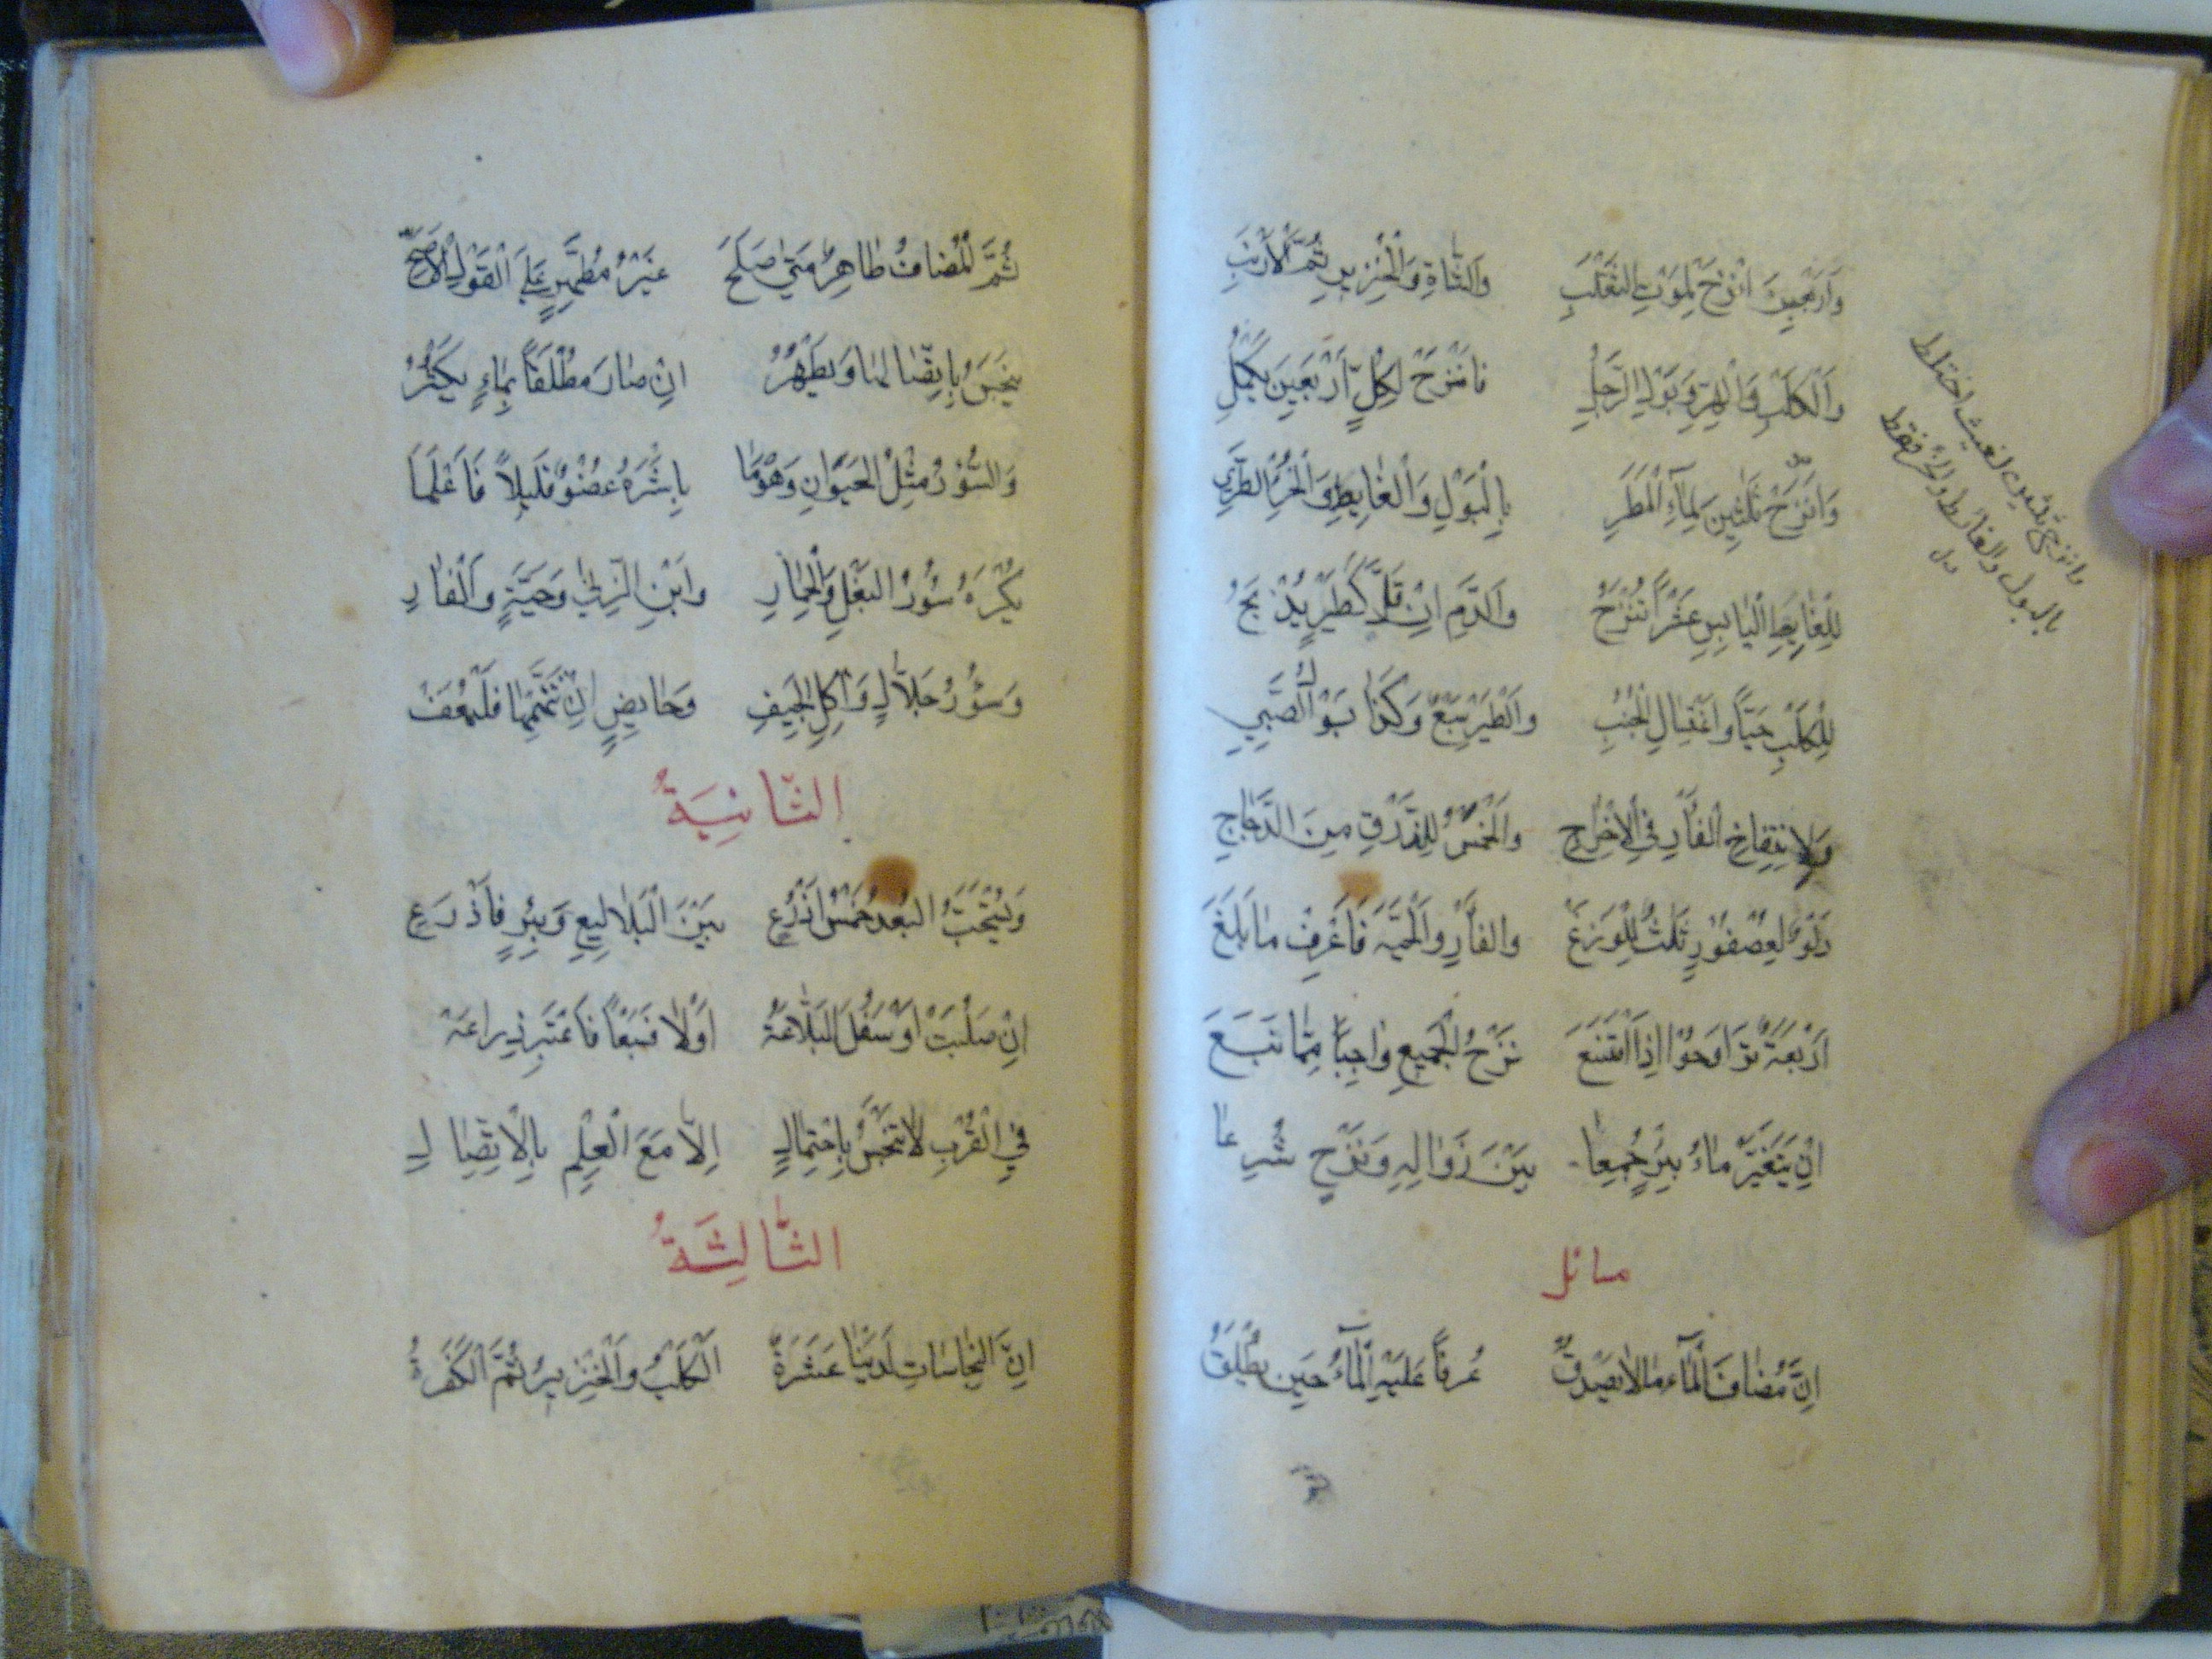 وَاَرْبَعِينَ انْزَحْ لِمَوْتِ الثَّعْلَبِ وَالشَّاةِ وَالْخِنْزِيرِ ثُمَّ الْأَرْنَبِ
وَالْكَلْبِ وَالْهِرِّ وَبَوْلِ الرَّجُلِ فَانْزَحْ لِكُلٍّ أَرْبَعِينَ يَكْمُلِ
وَانْزَحْ ثَلٰثِينَ لِمَاءِ الْمَطَرِ بِالْبَوْلِ وَالْغَايِطِ وَالْخُرْءِ الطَّرِي
وانزحن ثلثين لغيث اختلط
بالبول والغائط والخرء فقط
لِلْغَايِطِ الْيَابِسِ عَشْرًا تُنْزَحُ وَالدَّمِ اِنْ قَلَّ كَطَيْرٍ يُذْبَحُ
لِلْكَلْبِ حَيًّا وَاغْتِسَالِ الْجُنُبِ وَالطَّيْرِ سَبْعٌ وَكَذَا بَوْلُ الصَّبِيِ
وَلِانْتِفَاخِ الْفَأْرِ فِي الْاِخْرَاجِ وَالْخَمْسُ لِلذَّرْقِ مِنَ الدَّجَاجِ
دَلْوٌ لِعُصْفُورٍ ثَلَثٌ لِلْوَزَغْ وَالْفَأْرِ وَالْحَيَّةِ فَاغْرِفْ مَا بَلَغَ
اَرْبَعَةٌ تَرَاوَحُوْا اِذَا امْتَنَعَ نَزْحُ الْجَمِيعِ وَاجِبًا مِمَّا نَبَعَ
اِنْ يَتَغَيَّرْ مَاءُ بِئْرٍ جُمِعَا بَيْنَ زَوَالِهِ وَنَزْحٍ شُرِعَا
مسائل
اِنَّ مُضَافَ الْمَاءِ مَا لَا يَصْدُقُ عُرْفًا عَلَيْهِ الْمَاءُ حِينَ يُطْلَقُ
ثُمَّ الْمُضَافُ طَاهِرٌ مَتَى صَلَحَ غَيْرُ مُطَهِّرٍ عَلَى الْقَوْلِ الْأَصَحِّ
يَنْجَسُ بِاتِّصَالِهَا وَيَطْهُرُ اِنْ صَارَ مُطْلَقًا بِمَاءٍ يَكْثُرُ
وَالسُّؤْرُ مِثْلُ الْحَيَوَانِ وَهْوَ مَا بَاشَرَهُ عُضْوٌ قَلِيلًا فَاعْلَمَا
يُكْرَهُ سُؤْرُ الْبَغْلِ وَالْحِمَارِ وَابْنِ الزِّنَى وَحَيَّةٍ وَالْفَارِ
وَسُؤْرُ جَلَّالٍ وَآكِلِ الْجِيَفِ وَحَايِضٍ اِنْ تَتَّهِمْهَا فَلْيُعَفْ
الثَّانِيَةُ
وَيُسْتَحَبُّ الْبُعْدُ خَمْسَ اَذْرُعِ بَيْنَ الْبَلَالِيعِ وَبِئْرٍ فَاذْرَعِ
اِنْ صَلُبَتْ اَوْ سَفُلَ الْبَلَّاعَةُ اَوْ لَا فَسَبْعًا فَاعْتَبِرْ ذِرَاعَهْ
فِي الْقُرْبِ لَا تَنْجُسُ بِاحْتِمَالِ اِلَّا مَعَ الْعِلْمِ بِالْاِتِّصَالِ
الثَّالِثَةُ
اِنَّ النَّجَاسَاتِ لَدَيْنَا عَشَرَةٌ اَلْكَلْبُ وَالْخِنْزِيرُ ثُمَّ الْكَفَرَةُ